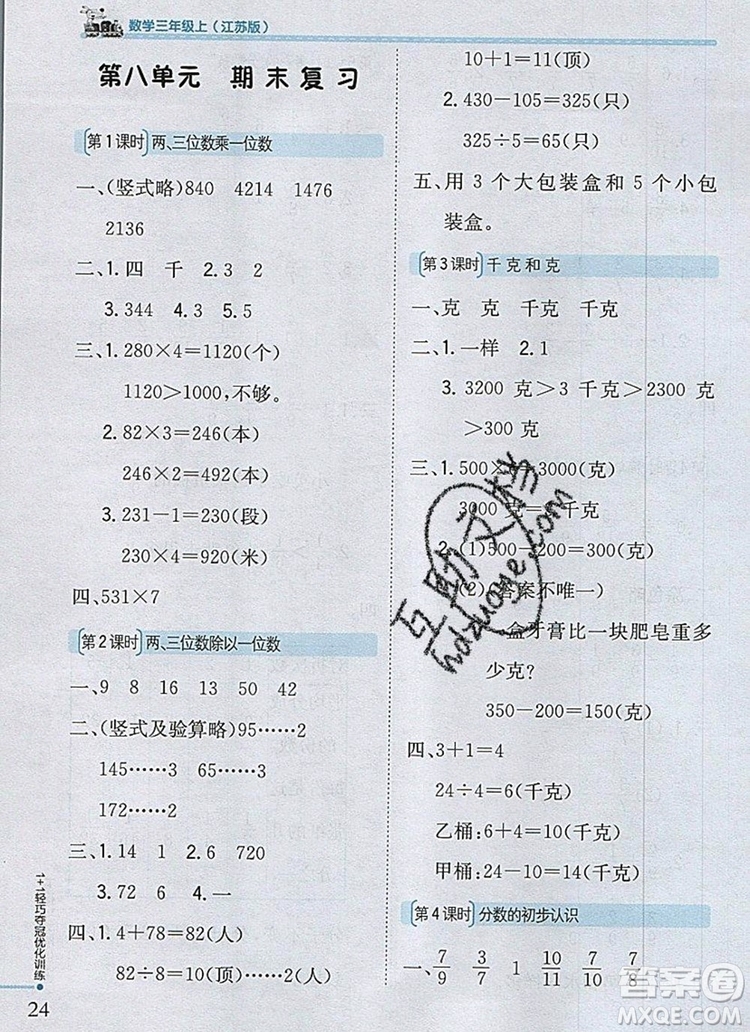 数学三年级上(江苏版)
第八单元 期末复习
第1课时 两、三位数乘一位数
一、(竖式略)840 4214 1476
2136
二、1.四 千 2.3 2
3.344 4.3 5.5
三、1.280×4=1120(个)
1120>1000,不够。
2.82×3=246(本)
246×2=492(本)
3.231-1=230(段)
230×4=920(米)
四、531×7
第2课时 两、三位数除以一位数
一、9 8 16 13 50 42
二、(竖式及验算略)95……2
145……3 65……2
172……2
三、1.14 1 2.6 720
3.72 6 4.一
四、1.4+78=82(人)
82÷8=10(顶)……2(人)
10+1=11(顶)
2.430-105=325(只)
325÷5=65(只)
五、用3个大包装盒和5个小包
装盒。
第3课时 千克和克
一、克 克 千克 千克
二、1.一样 2.1
3.3200克>3千克>2300克
>300克
三、1.500×6=3000(克)
3000克=3千克
2.(1)500-200=300(克)
(2)(答案不唯一)
一盒牙膏比一块肥皂重多
少克?
350-200=150(克)
四、3+1=4
24÷4=6(千克)
乙桶:6+4=10(千克)
甲桶:24-10=14(千克)
第4课时 分数的初步认识
一、7/9 3/7 1 10/11 7/10 7/8
1+1轻巧夺冠优化训练
24
互助文档
hdzuoye.com
答案圈
MXQE.COM